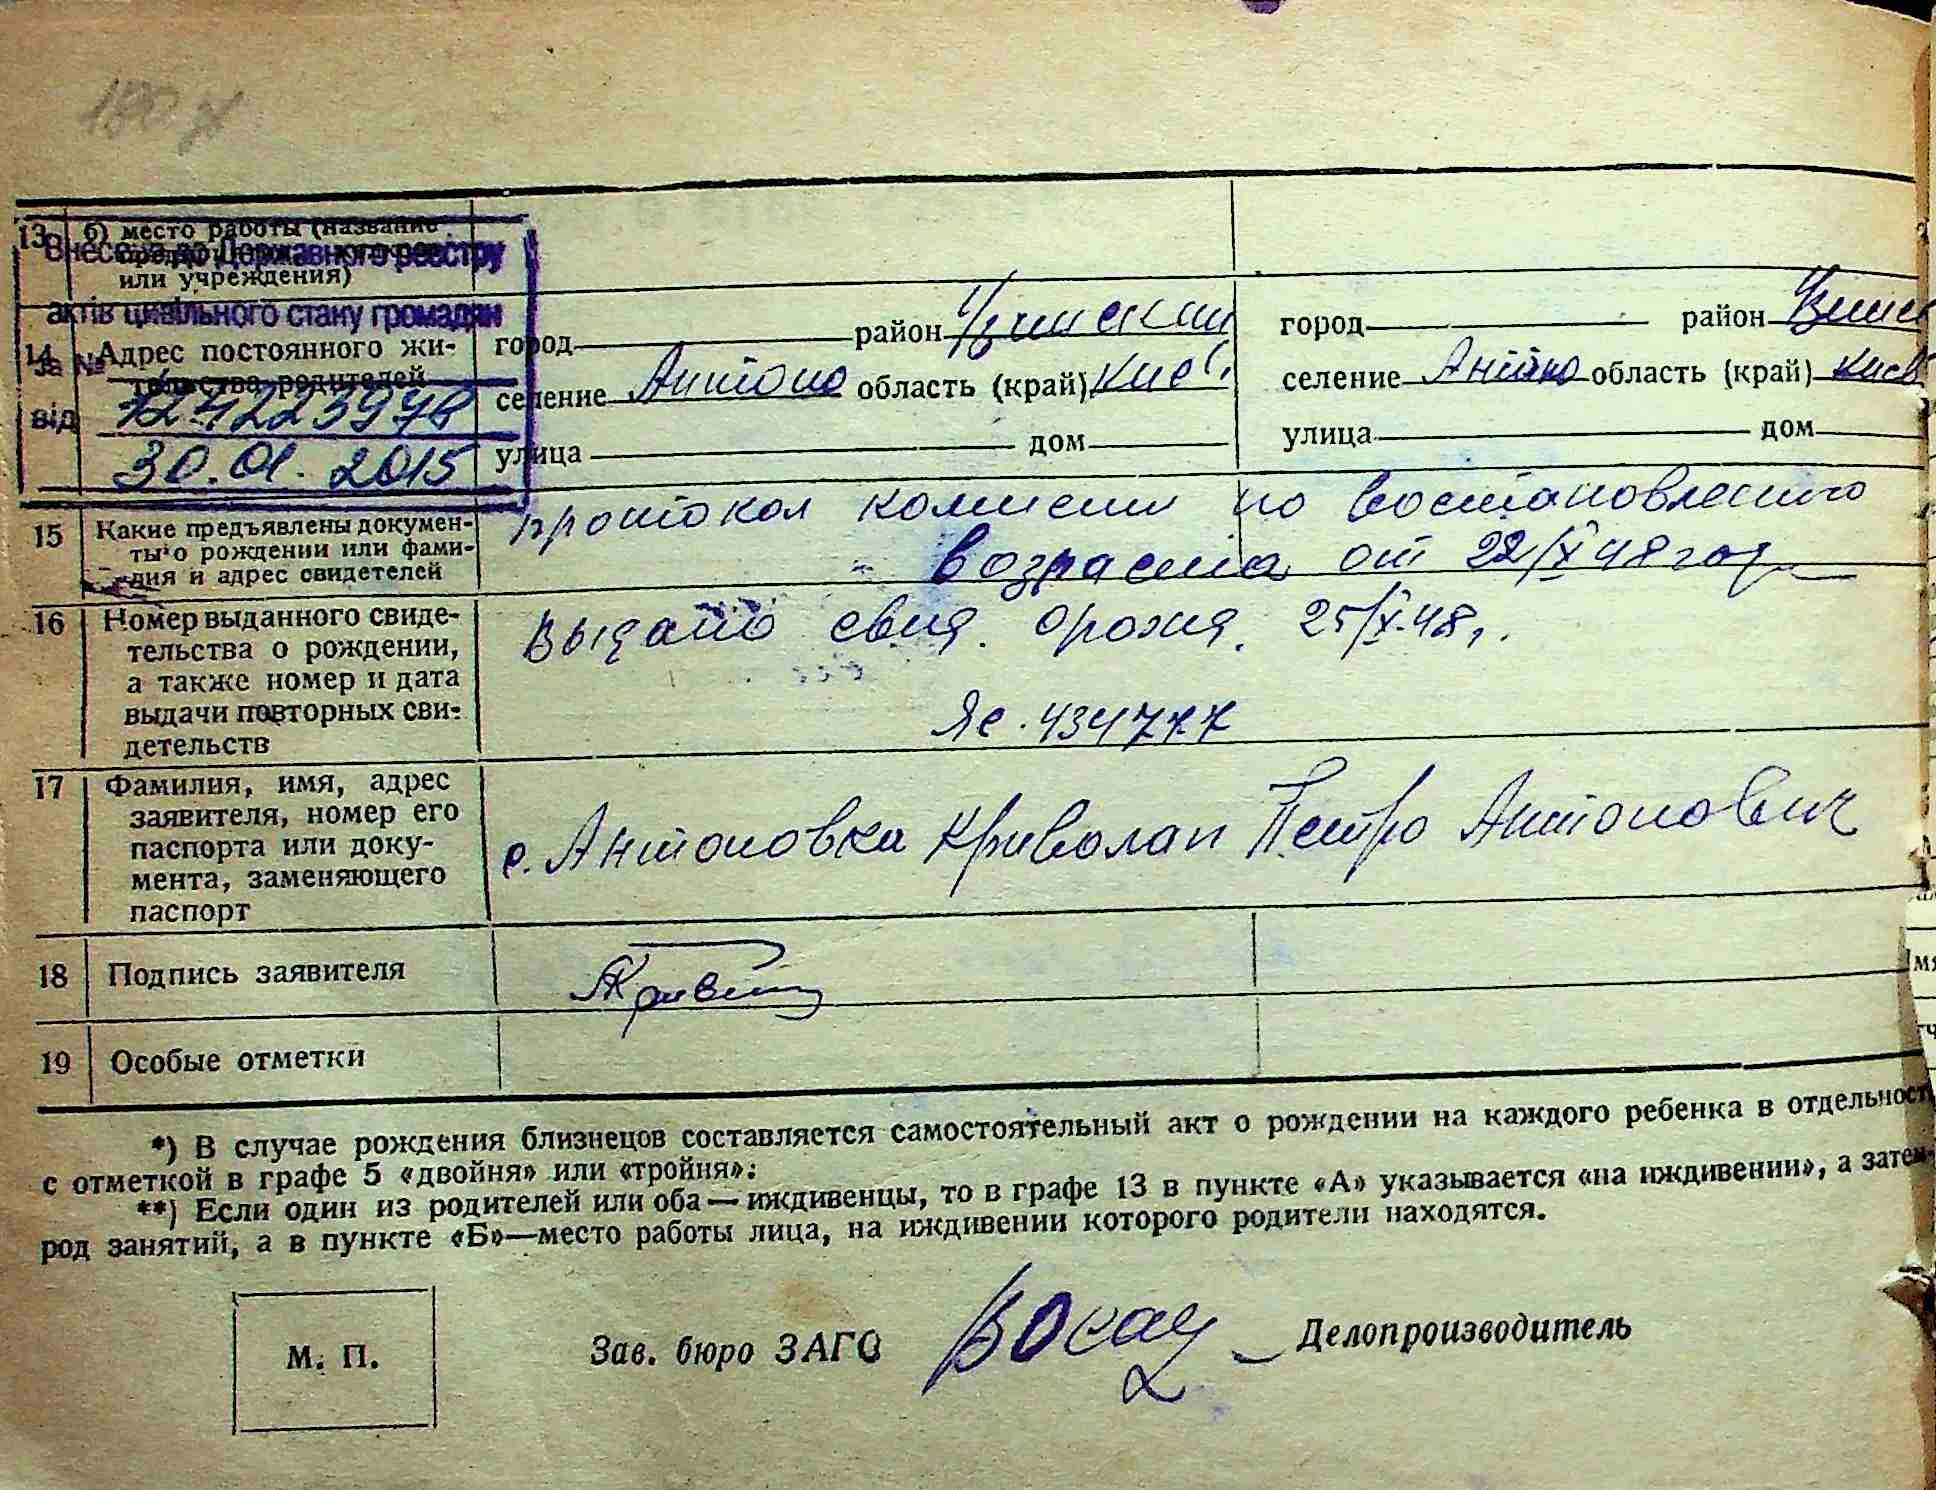 13 б) место работы (название
или учреждения)
Внесено до Державного реєстру
актів цивільного стану громадян
за №
від
30.01.2015
14 Адрес постоянного жи-
тельства родителей
город район
селение Антоно область (край) Киев
улица дом
город район
селение Антоно область (край) Киев
улица дом
15 Какие предъявлены докумен-
ты о рождении или фами-
лия и адрес свидетелей
протокол комисии по востановлению
возраста от 22/X 48 год
16 Номер выданного свиде-
тельства о рождении,
а также номер и дата
выдачи повторных сви-
детельств
Выдано свид. орожд. 25/X.48г.
Яс. 434777
17 Фамилия, имя, адрес
заявителя, номер его
паспорта или доку-
мента, заменяющего
паспорт
с. Антоновка Криволап Петро Антонович
18 Подпись заявителя
19 Особые отметки
*) В случае рождения близнецов составляется самостоятельный акт о рождении на каждого ребенка в отдельност
с отметкой в графе 5 «двойня» или «тройня».
**) Если один из родителей или оба — иждивенцы, то в графе 13 в пункте «А» указывается «на иждивении», а затем
род занятий, а в пункте «Б»—место работы лица, на иждивении которого родители находятся.
М. П.
Зав. бюро ЗАГС Делопроизводитель